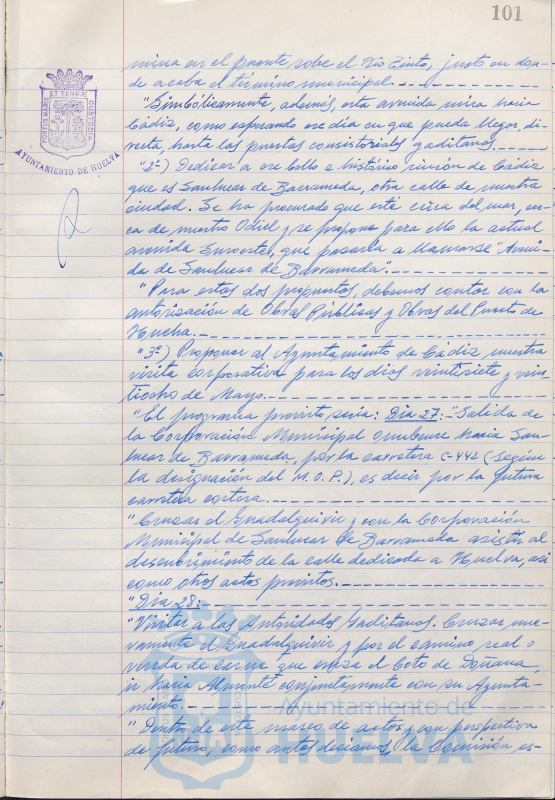 101
PORTUS MARIS ET TERRAE CUSTODIA
AYUNTAMIENTO DE HUELVA
mina en el puente sobre el Río Tinto, justo en don-
de acaba el término municipal.
"Simbólicamente, además, esta avenida mira hacia
Cádiz, como esperando ese día en que pueda llegar, di-
recta, hasta las puertas consistoriales gaditanas.
"2º) Dedicar a ese bello e histórico rincón de Cádiz
que es Sanlucar de Barrameda, otra calle de nuestra
ciudad. Se ha procurado que esté cerca del mar, cer-
ca de nuestro Odiel y se propone para ello la actual
avenida Suroeste, que pasaría a llamarse "Aveni-
da de Sanlucar de Barrameda".
"Para estas dos propuestas, debemos contar con la
autorización de Obras Públicas y Obras del Puerto de
Huelva.
"3º) Proponer al Ayuntamiento de Cádiz nuestra
visita corporativa para los días veintisiete y vein-
tiocho de Mayo.
"El programa previsto sería: Día 27: "Salida de
la Corporación Municipal onubense hacia San-
lucar de Barrameda, por la carretera C-442 (según
la designación del M.O.P.), es decir por la futura
carretera costera.
"Cruzar el Guadalquivir y con la Corporación
Municipal de Sanlucar de Barrameda asistir al
descubrimiento de la calle dedicada a Huelva, así
como otros actos previstos.
"Día 28:
"Visitar a las Autoridades Gaditanas. Cruzar nue-
vamente el Guadalquivir y por el camino real o
vereda de carne que cruza el Coto de Doñana,
ir hacia Almonte conjuntamente con su Ayunta-
miento.
"Dentro de este marco de actos y con perspectiva
de futuro, como antes decíamos, la Comisión es-
Ayuntamiento de
HUELVA